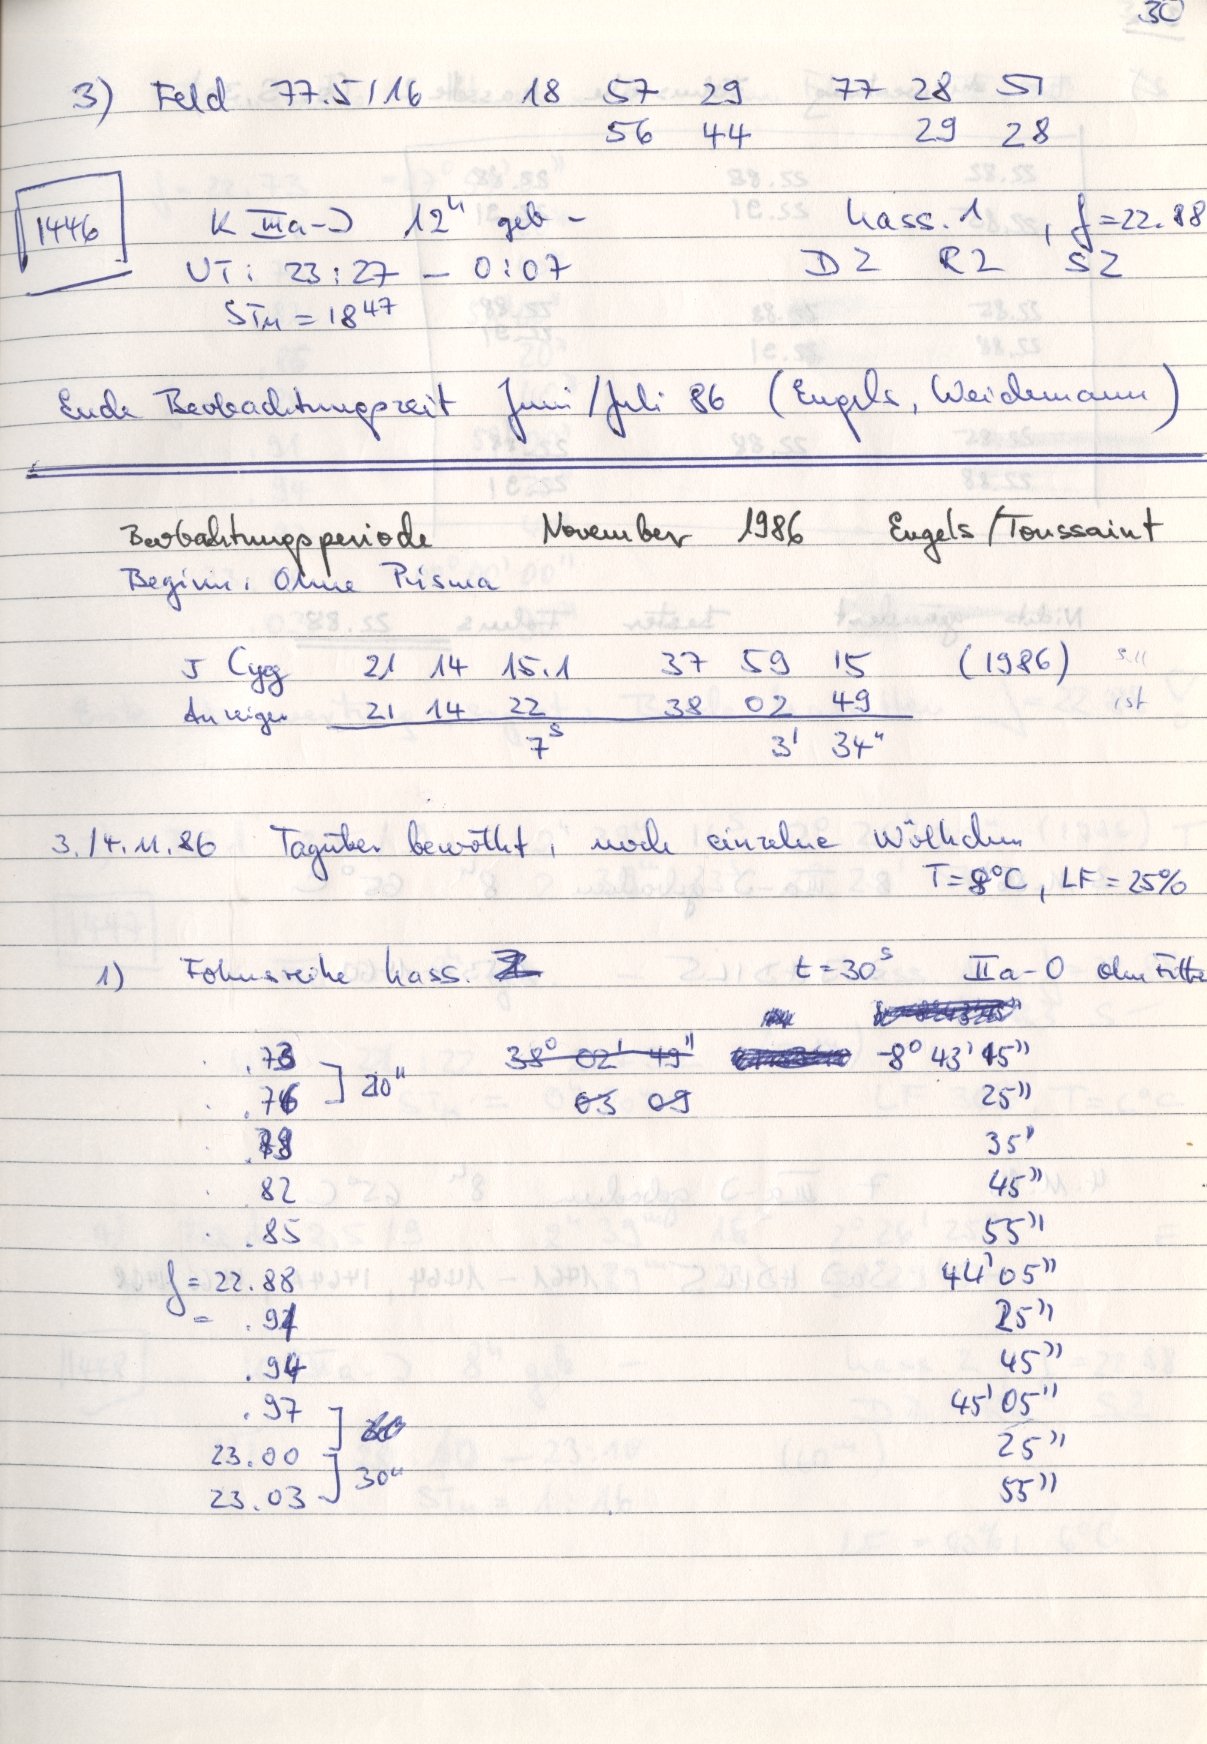 30
3) Feld 77.5/16 18 57 29 77 28 51
56 44 29 28
1446 K IIIa-J 12h geb - Kass. 1, f=22.88
UT: 23:27 - 0:07 D2 R2 S2
STM = 18 47
Ende Beobachtungszeit Juni/Juli 86 (Engels, Weidemann)
Beobachtungsperiode November 1986 Engels/Toussaint
Beginn: Ohne Prisma
Cyg 21 14 15.1 37 59 15 (1986) soll
Anzeige 21 14 22 38 02 49 ist
7s 3' 34"
3./4.11.86 Tagüber bewölkt, noch einzelne Wölkchen
T=8°C, LF=25%
1) Fokusreihe Kass. t=30s IIa-O ohne Filter
.73 ] 20" 38° 02' 49" -8° 43' 15"
.76 03 09 25"
.79 35"
.82 45"
.85 55"
f = 22.88 44' 05"
= .91 25"
.94 45"
.97 ] 45' 05"
23.00 ] 30" 25"
23.03 55"